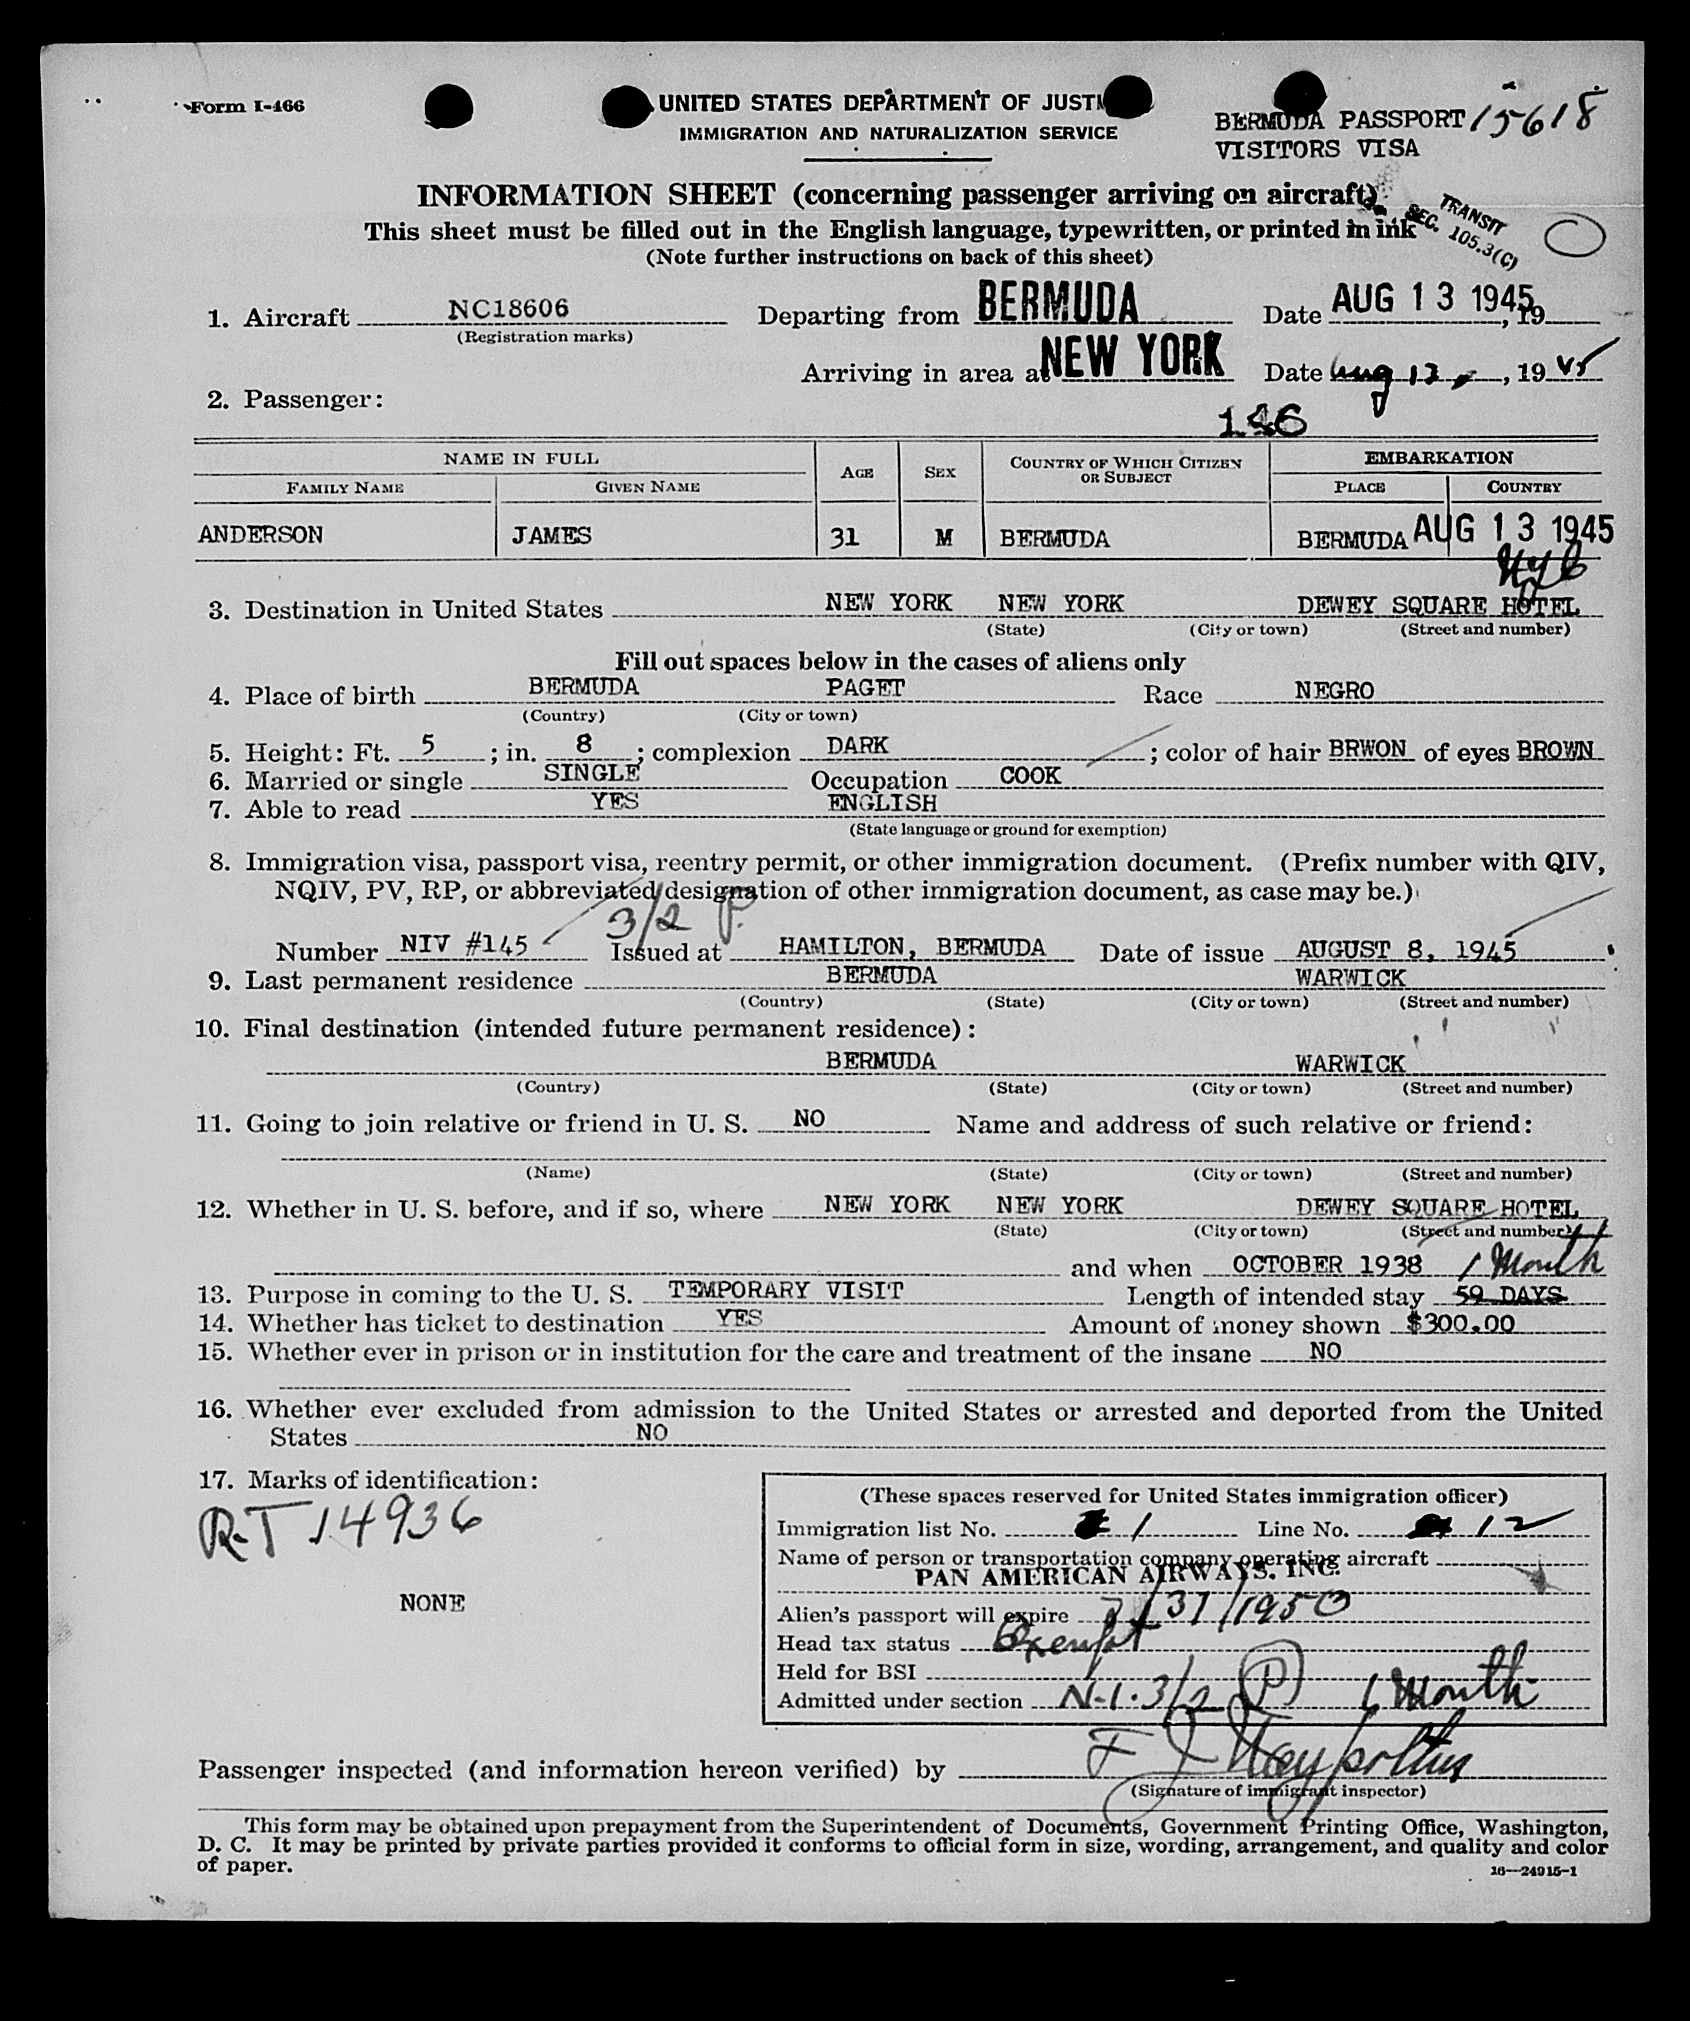 Form I-466
UNITED STATES DEPARTMENT OF JUSTI
IMMIGRATION AND NATURALIZATION SERVICE
BERMUDA PASSPORT 15618
VISITORS VISA
INFORMATION SHEET (concerning passenger arriving on aircraft)
This sheet must be filled out in the English language, typewritten, or printed in ink
(Note further instructions on back of this sheet)
TRANSIT
SEC. 105.3(C)
1. Aircraft NC18606 Departing from BERMUDA Date AUG 13 1945, 19
(Registration marks)
Arriving in area at NEW YORK Date Aug 13, 1945
2. Passenger:
146
NAME IN FULL AGE SEX COUNTRY OF WHICH CITIZEN OR SUBJECT EMBARKATION
FAMILY NAME GIVEN NAME PLACE COUNTRY
ANDERSON JAMES 31 M BERMUDA BERMUDA AUG 13 1945
3. Destination in United States NEW YORK NEW YORK DEWEY SQUARE HOTEL
(State) (City or town) (Street and number)
Fill out spaces below in the cases of aliens only
4. Place of birth BERMUDA PAGET Race NEGRO
(Country) (City or town)
5. Height: Ft. 5; in. 8; complexion DARK; color of hair BRWON of eyes BROWN
6. Married or single SINGLE Occupation COOK
7. Able to read YES ENGLISH
(State language or ground for exemption)
8. Immigration visa, passport visa, reentry permit, or other immigration document. (Prefix number with QIV,
NQIV, PV, RP, or abbreviated designation of other immigration document, as case may be.)
3/2 P.
Number NIV #145 Issued at HAMILTON, BERMUDA Date of issue AUGUST 8, 1945
9. Last permanent residence BERMUDA WARWICK
(Country) (State) (City or town) (Street and number)
10. Final destination (intended future permanent residence):
BERMUDA WARWICK
(Country) (State) (City or town) (Street and number)
11. Going to join relative or friend in U. S. NO Name and address of such relative or friend:
(Name) (State) (City or town) (Street and number)
12. Whether in U. S. before, and if so, where NEW YORK NEW YORK DEWEY SQUARE HOTEL
(State) (City or town) (Street and number)
and when OCTOBER 1938 1 Month
13. Purpose in coming to the U. S. TEMPORARY VISIT Length of intended stay 59 DAYS
14. Whether has ticket to destination YES Amount of money shown $300.00
15. Whether ever in prison or in institution for the care and treatment of the insane NO
16. Whether ever excluded from admission to the United States or arrested and deported from the United
States NO
17. Marks of identification:
R-T 14936
NONE
(These spaces reserved for United States immigration officer)
Immigration list No. 1 Line No. 12
Name of person or transportation company operating aircraft
PAN AMERICAN AIRWAYS. INC.
Alien's passport will expire 31/1950
Head tax status Exempt
Held for BSI
Admitted under section N-1.3/2 P 1 Month
Passenger inspected (and information hereon verified) by
(Signature of immigrant inspector)
This form may be obtained upon prepayment from the Superintendent of Documents, Government Printing Office, Washington,
D. C. It may be printed by private parties provided it conforms to official form in size, wording, arrangement, and quality and color
of paper.
16—24915-1